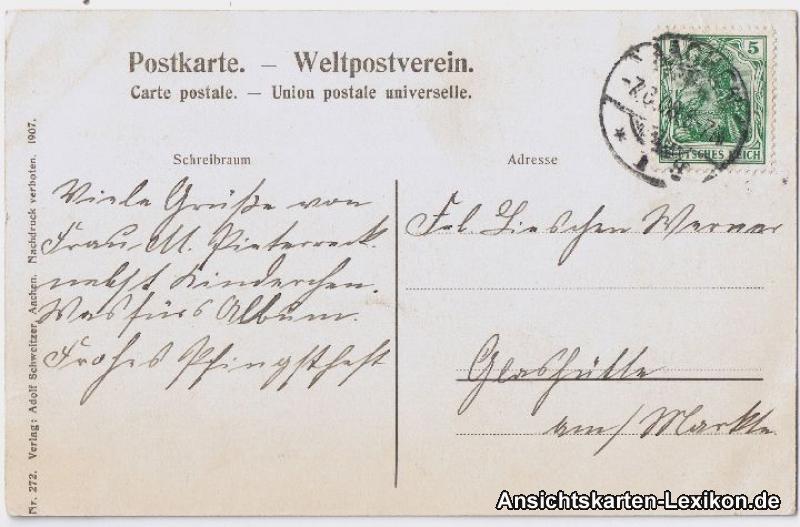 Postkarte. — Weltpostverein.
Carte postale. — Union postale universelle.
5
DEUTSCHES REICH
Schreibraum
Viele Grüße von
Frau M.
nebst Kinderchen.
Was fürs Album.
Frohes Pfingstfest
Adresse
Frl. Lieschen Werner
Glashütte
am/ Markte.
Nr. 272. Verlag: Adolf Schweitzer, Aachen. Nachdruck verboten. 1907.
Ansichtskarten-Lexikon.de